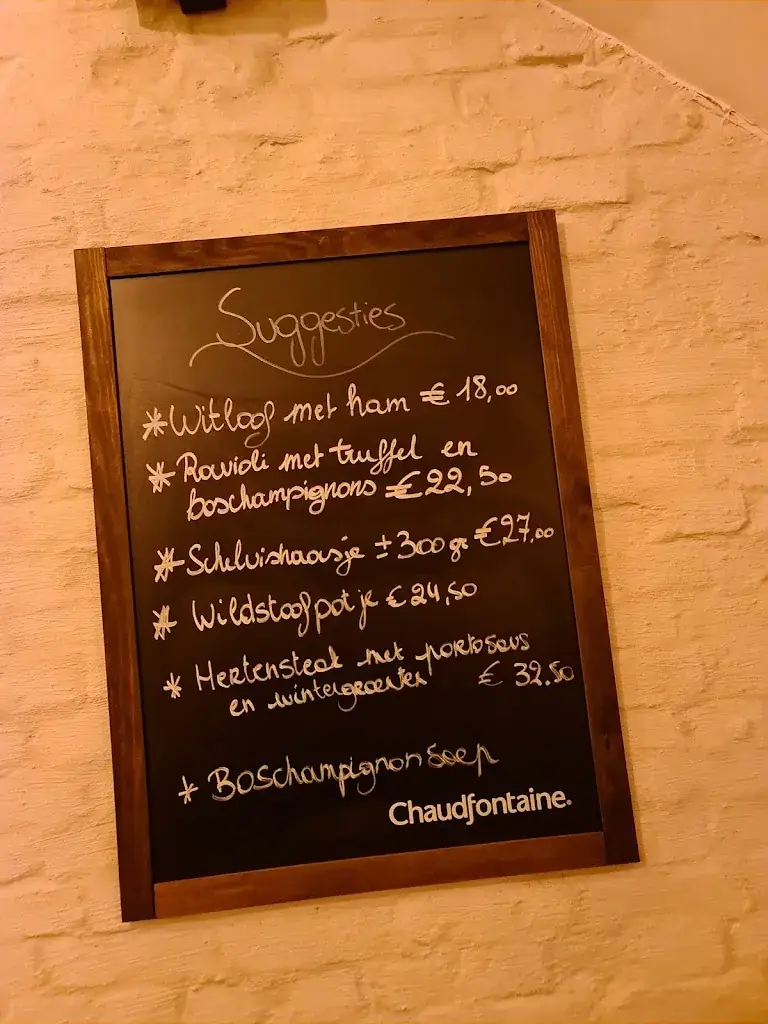 Suggesties
* Witloof met ham € 18,00
* Ravioli met truffel en
boschampignons € 22,50
* Schelvishaasje ± 300 gr € 27,00
* Wildstoofpotje € 24,50
* Hertensteak met portosaus
en wintergroenten € 32.50
* Boschampignonsoep
Chaudfontaine.